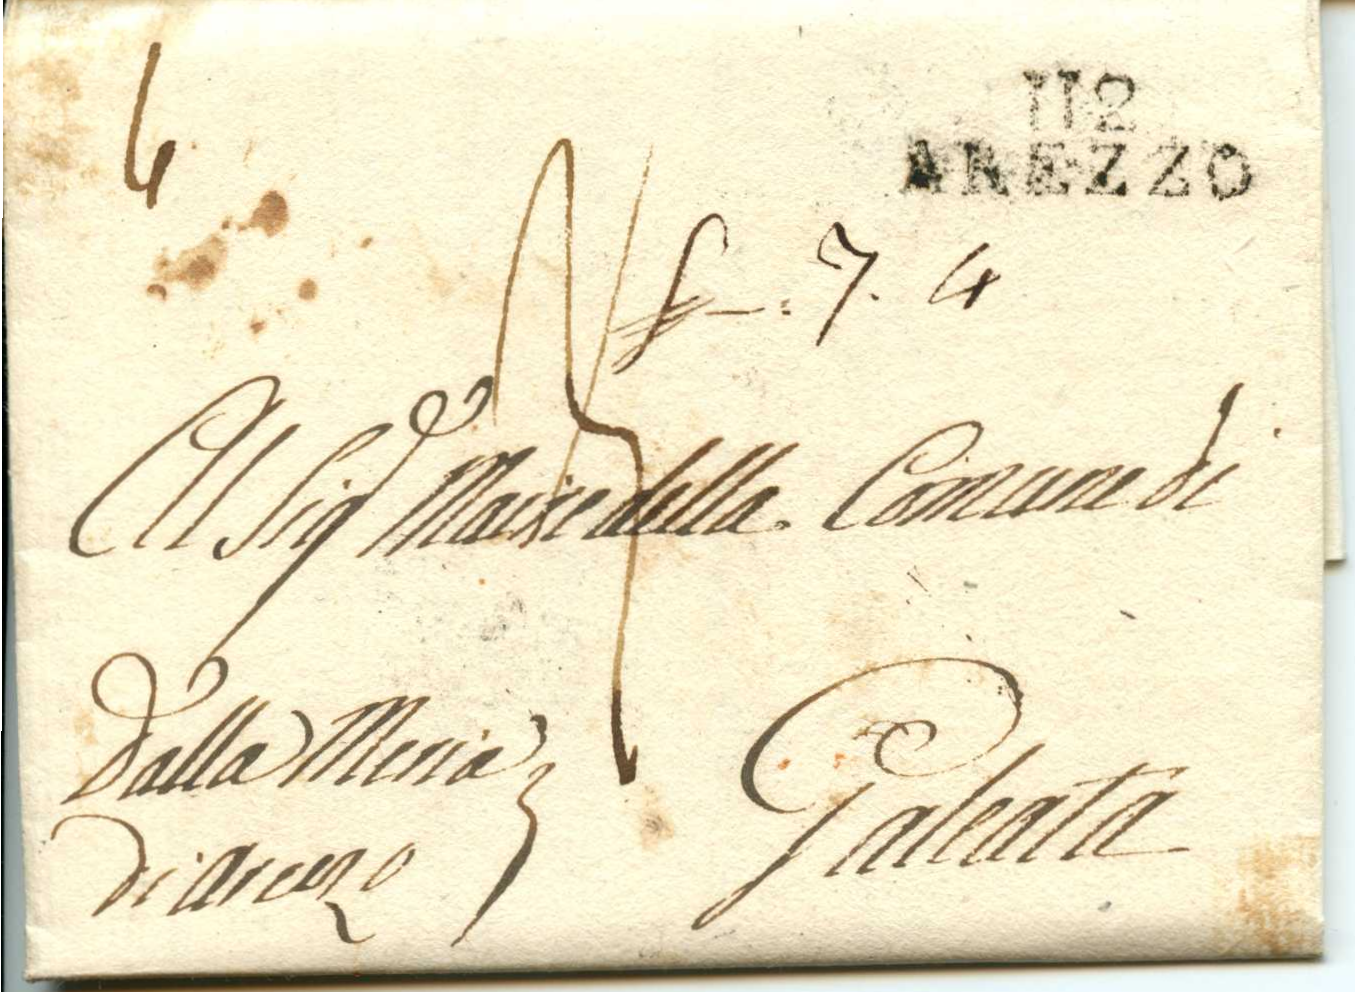 112
AREZZO
4
f—. 7. 4
Al Sigr Maire della Comune di
Galeata
Dalla Meria
di Arezzo